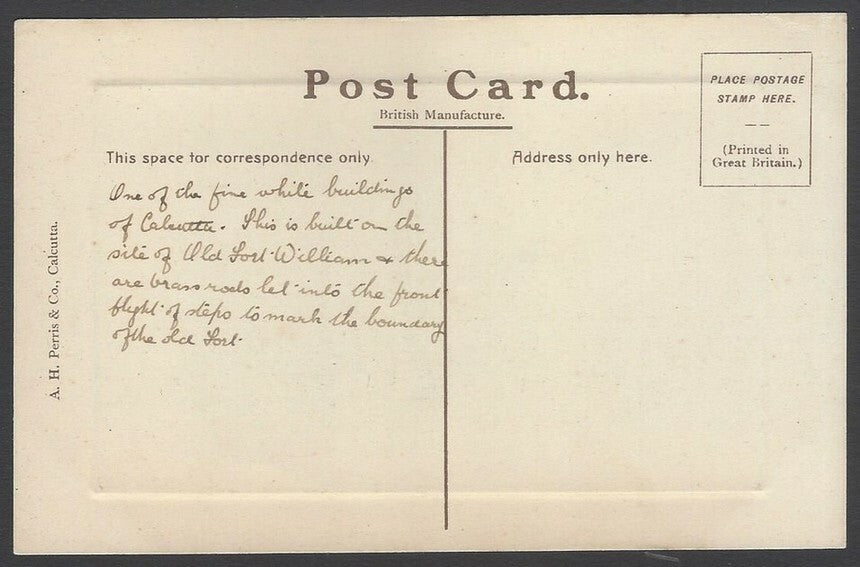 Post Card.
British Manufacture.
PLACE POSTAGE
STAMP HERE.
(Printed in
Great Britain.)
This space for correspondence only.
Address only here.
One of the fine white buildings
of Calcutta. This is built on the
site of Old Fort William & there
are brass rods let into the front
flight of steps to mark the boundary
of the old Fort.
A. H. Perris & Co., Calcutta.